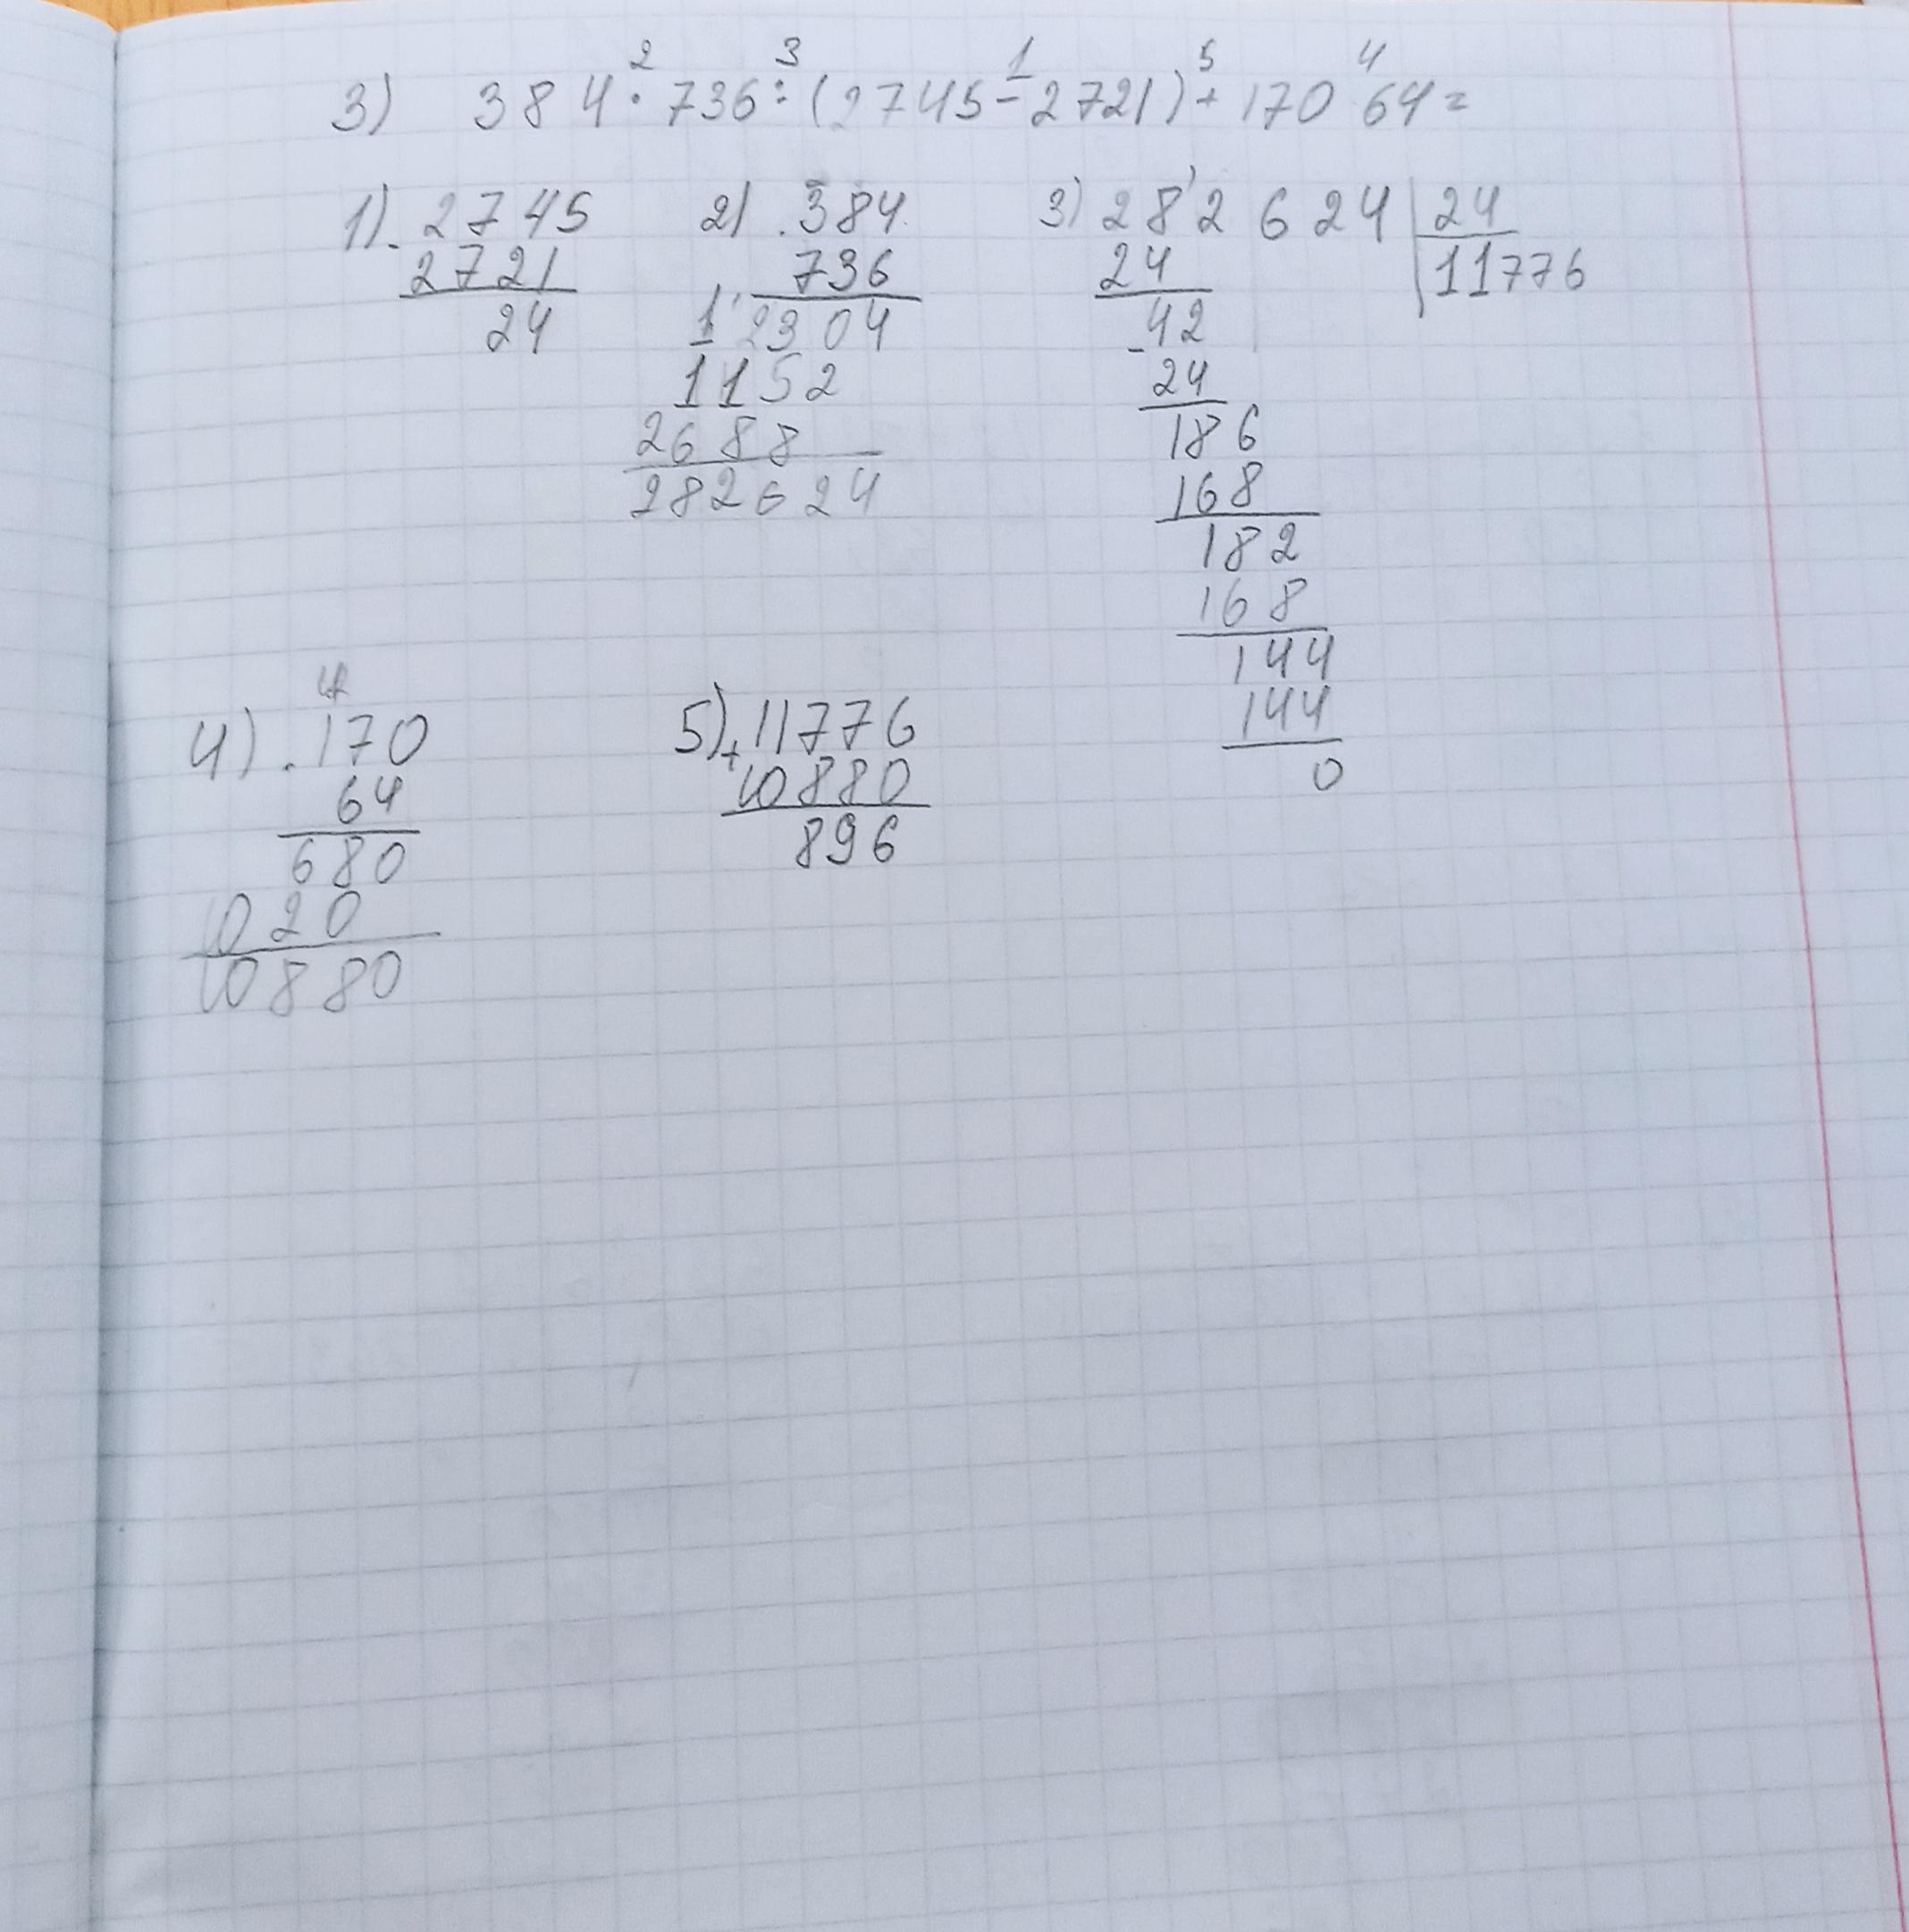 2 3 1 5 4
3) 384 · 736 : (2745 - 2721) + 170 64 =
1) - 2745
2721
24
2) . 384
736
12304
1152
2688
282624
3) 282624 | 24
11776
24
- 42
24
186
168
182
168
144
144
0
4
4) . 170
64
680
1020
10880
5) + 11776
10880
896